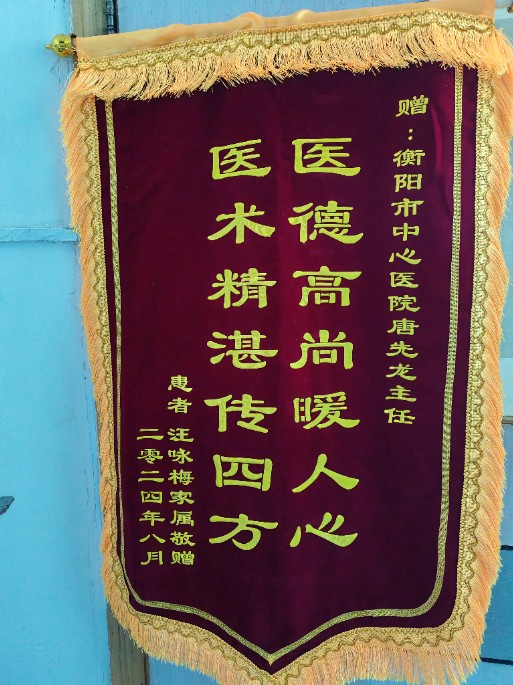 赠：衡阳市中心医院唐先龙主任
医德高尚暖人心
医术精湛传四方
患者 汪咏梅家属敬赠
二零二四年八月